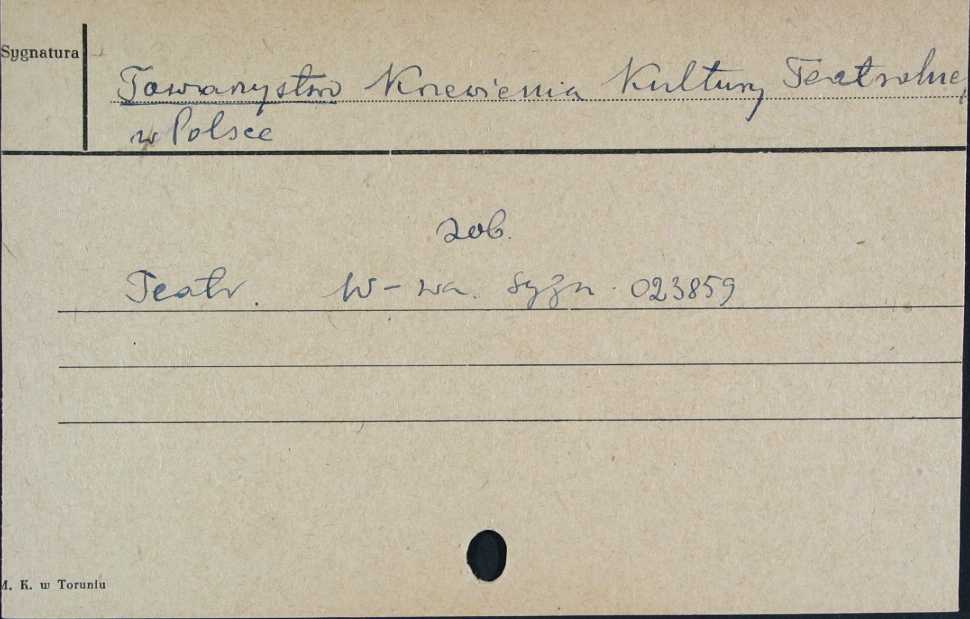 Sygnatura
Towarzystwo Krzewienia Kultury Teatralnej
w Polsce
zob.
Teatr. W-wa. Sygn. 023859
M. K. w Toruniu